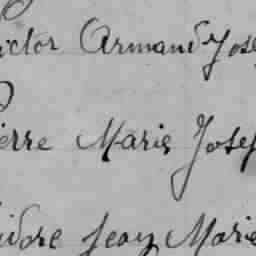 ictor Armand Jose
ierre Marie Josep
idore Jean Marie